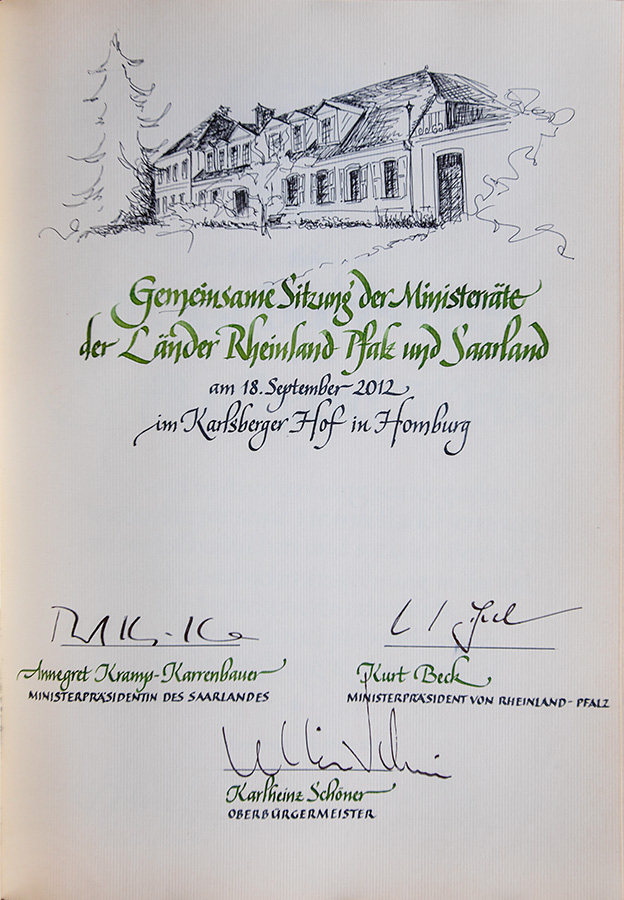 Gemeinsame Sitzung der Ministerräte
der Länder Rheinland-Pfalz und Saarland
am 18. September 2012
im Karlsberger Hof in Homburg
Annegret Kramp-Karrenbauer
MINISTERPRÄSIDENTIN DES SAARLANDES
Kurt Beck
MINISTERPRÄSIDENT VON RHEINLAND-PFALZ
Karlheinz Schöner
OBERBÜRGERMEISTER